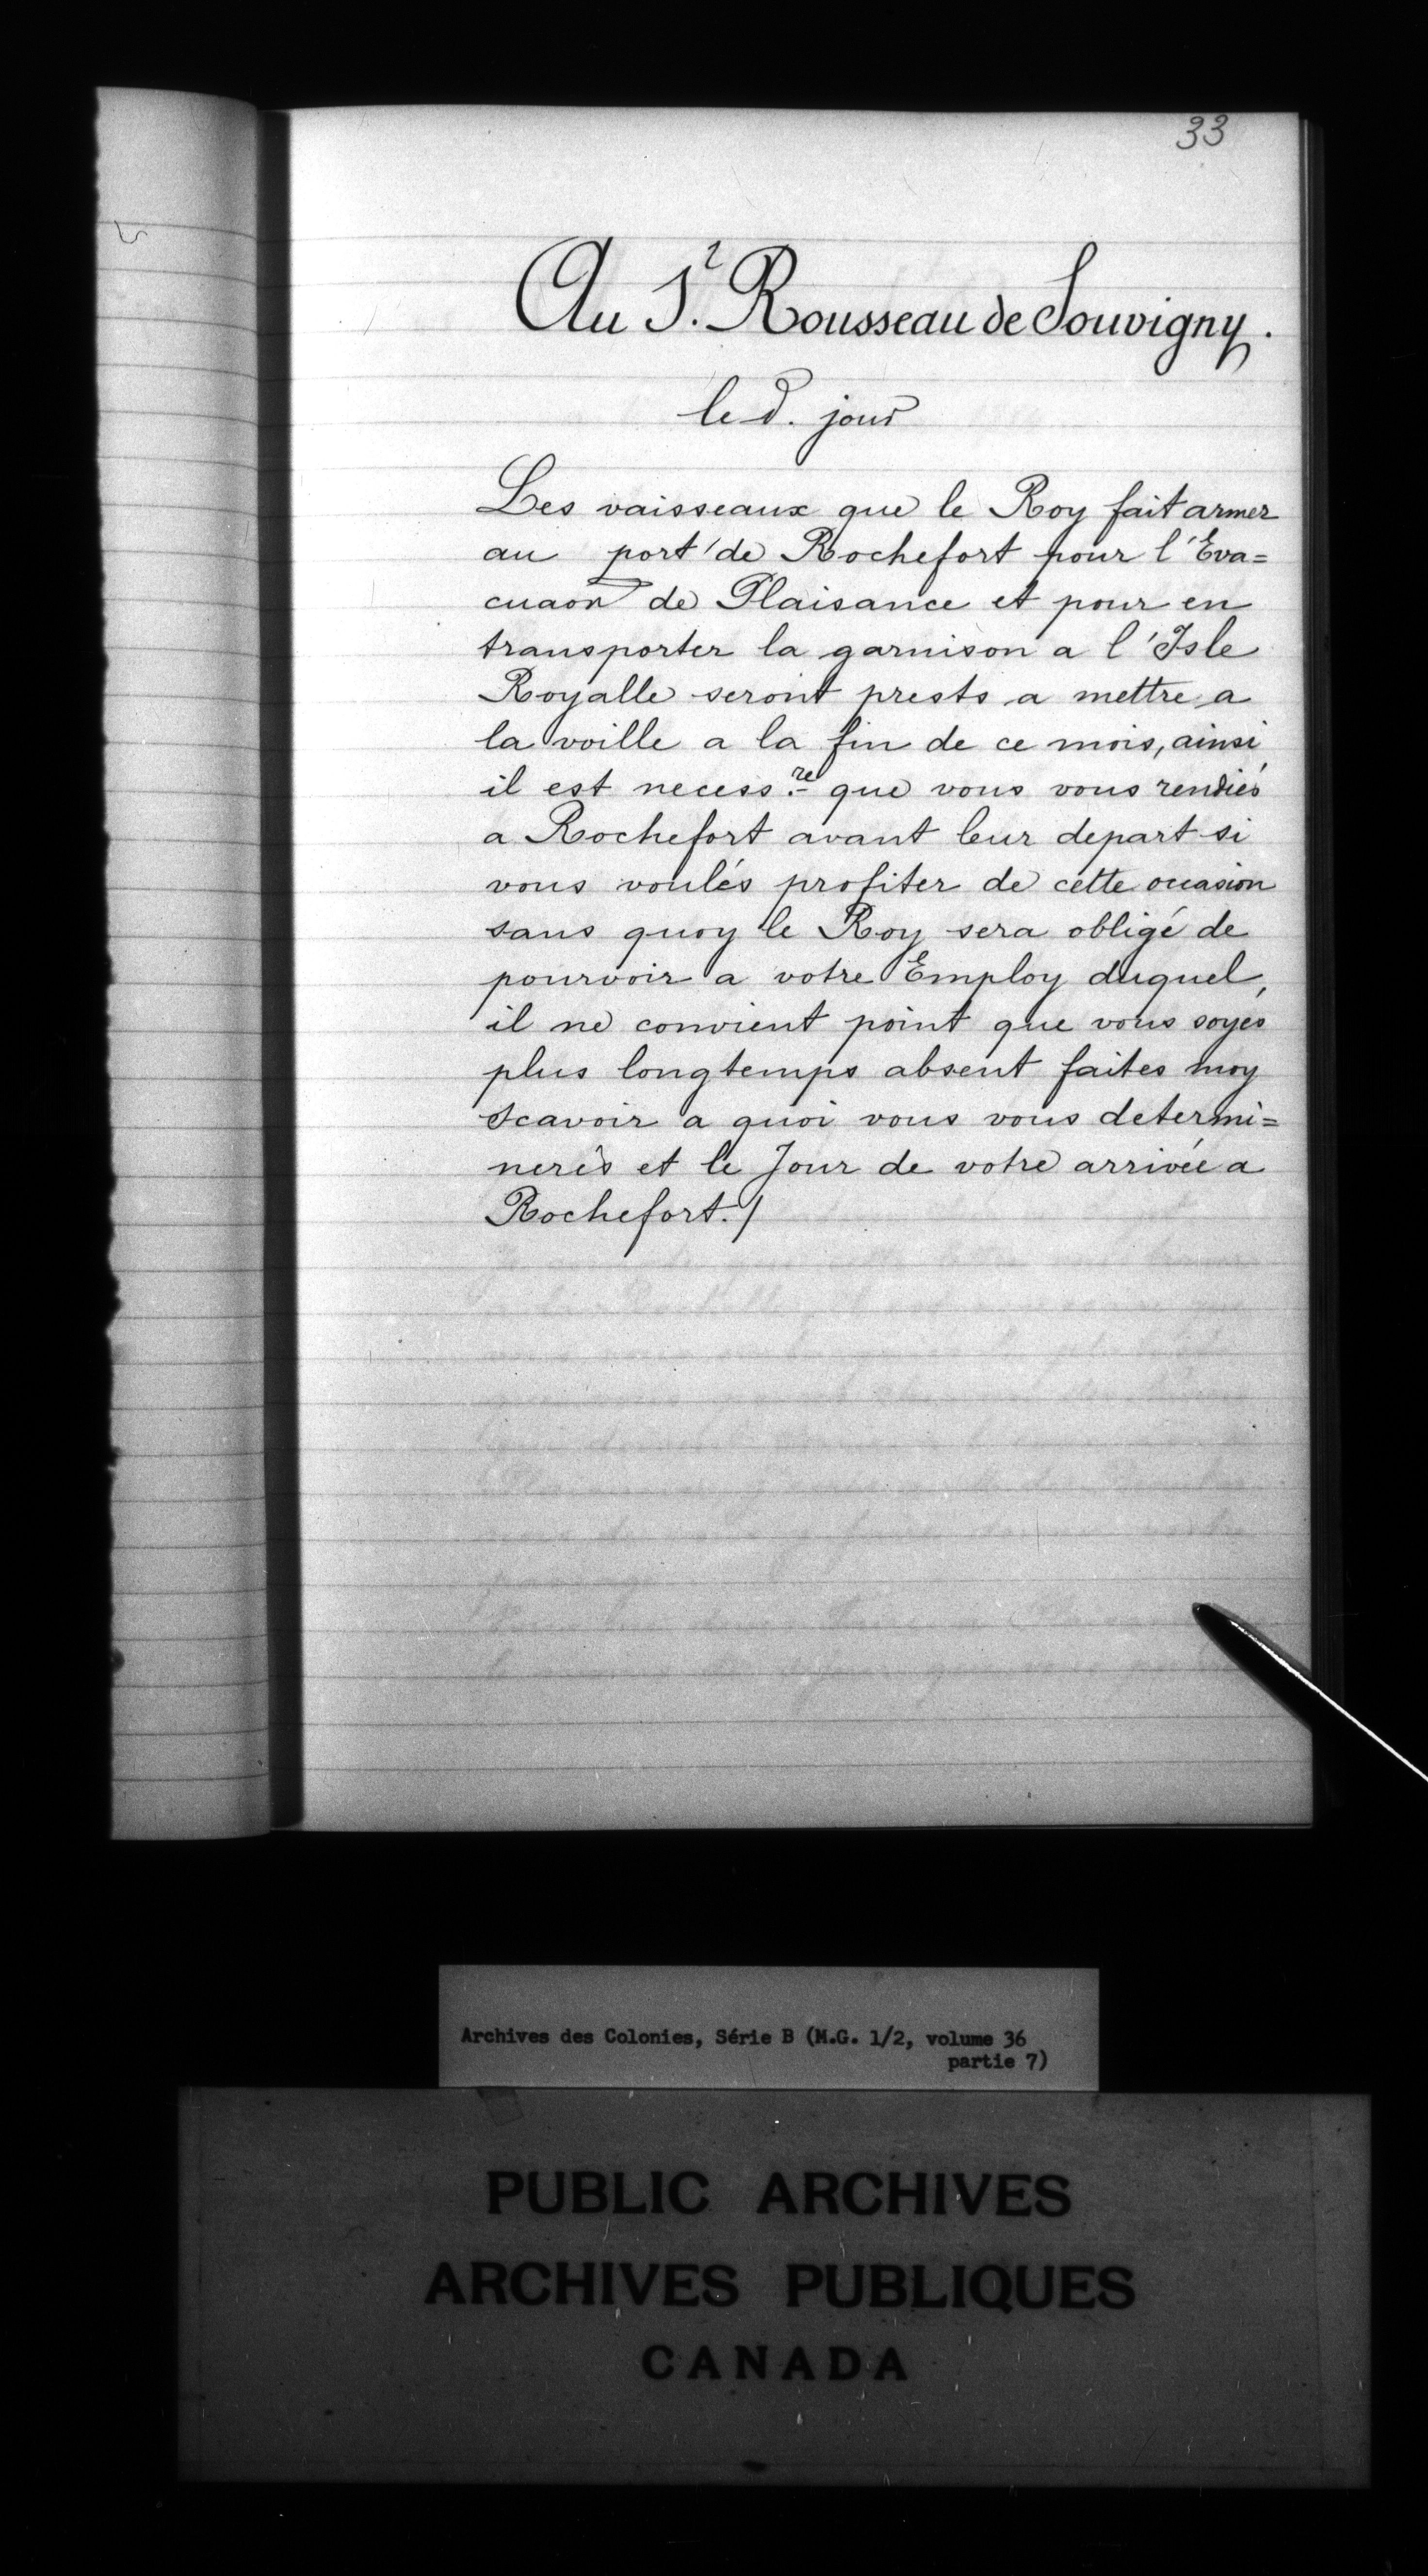 33
Au S.r Rousseau de Souvigny.
le d. jour
Les vaisseaux que le Roy fait armer
au port de Rochefort pour l'Eva=
cuaon de Plaisance et pour en
transporter la garnison a l'Isle
Royalle seront prests a mettre a
la voille a la fin de ce mois, ainsi
il est necess.re que vous vous rendiés
a Rochefort avant leur depart si
vous voulés profiter de cette occasion
sans quoy le Roy sera obligé de
pourvoir a votre Employ duquel,
il ne convient point que vous soyes
plus longtemps absent faites moy
scavoir a quoi vous vous determi=
nerés et le Jour de votre arrivée a
Rochefort./
Archives des Colonies, Série B (M.G. 1/2, volume 36
partie 7)
PUBLIC ARCHIVES
ARCHIVES PUBLIQUES
CANADA